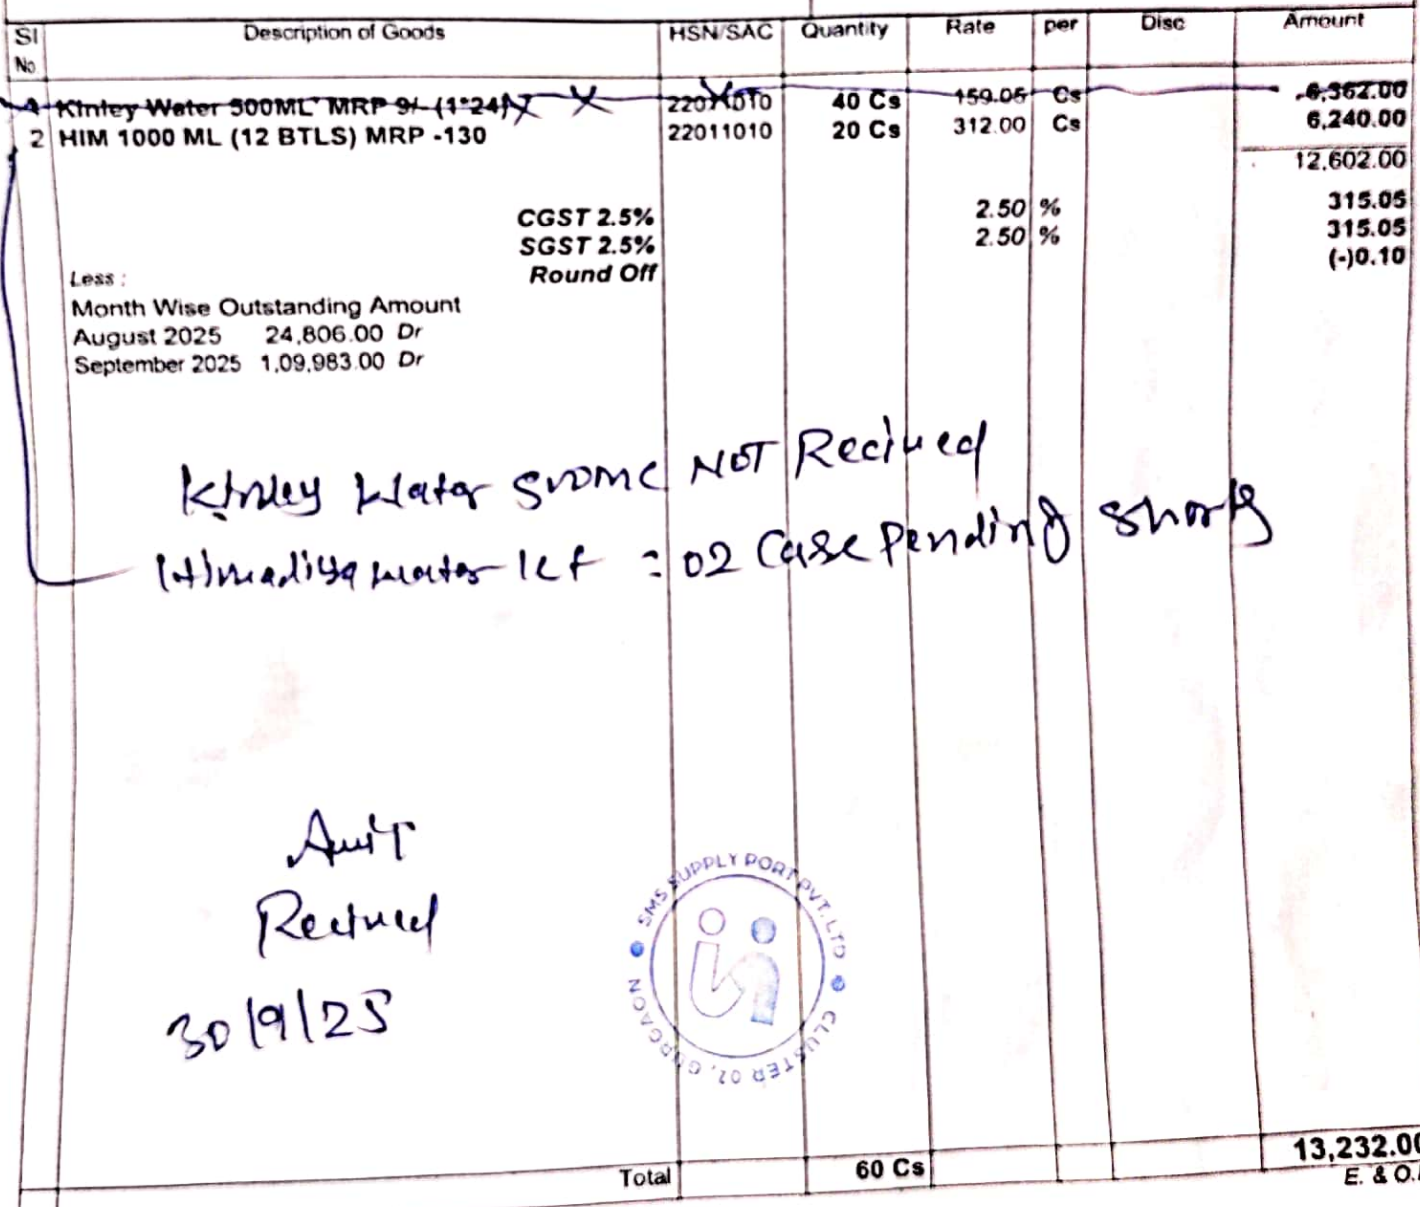 Sl No Description of Goods HSN/SAC Quantity Rate per Disc Amount
1 Kinley Water 500ML MRP 9/- (1*24) 22011010 40 Cs 159.05 Cs 6,362.00
2 HIM 1000 ML (12 BTLS) MRP -130 22011010 20 Cs 312.00 Cs 6,240.00
12,602.00
CGST 2.5% 2.50 % 315.05
SGST 2.5% 2.50 % 315.05
Less : Round Off (-)0.10
Month Wise Outstanding Amount
August 2025 24,806.00 Dr
September 2025 1,09,983.00 Dr
Kinley Water 500ML NOT Recived
Himadiya water 1Lt = 02 Case Pending Short
Amit
Recived
30/9/25
SMS SUPPLY PORT PVT. LTD
CLUSTER 02, GURGAON
Total 60 Cs 13,232.00
E. & O.